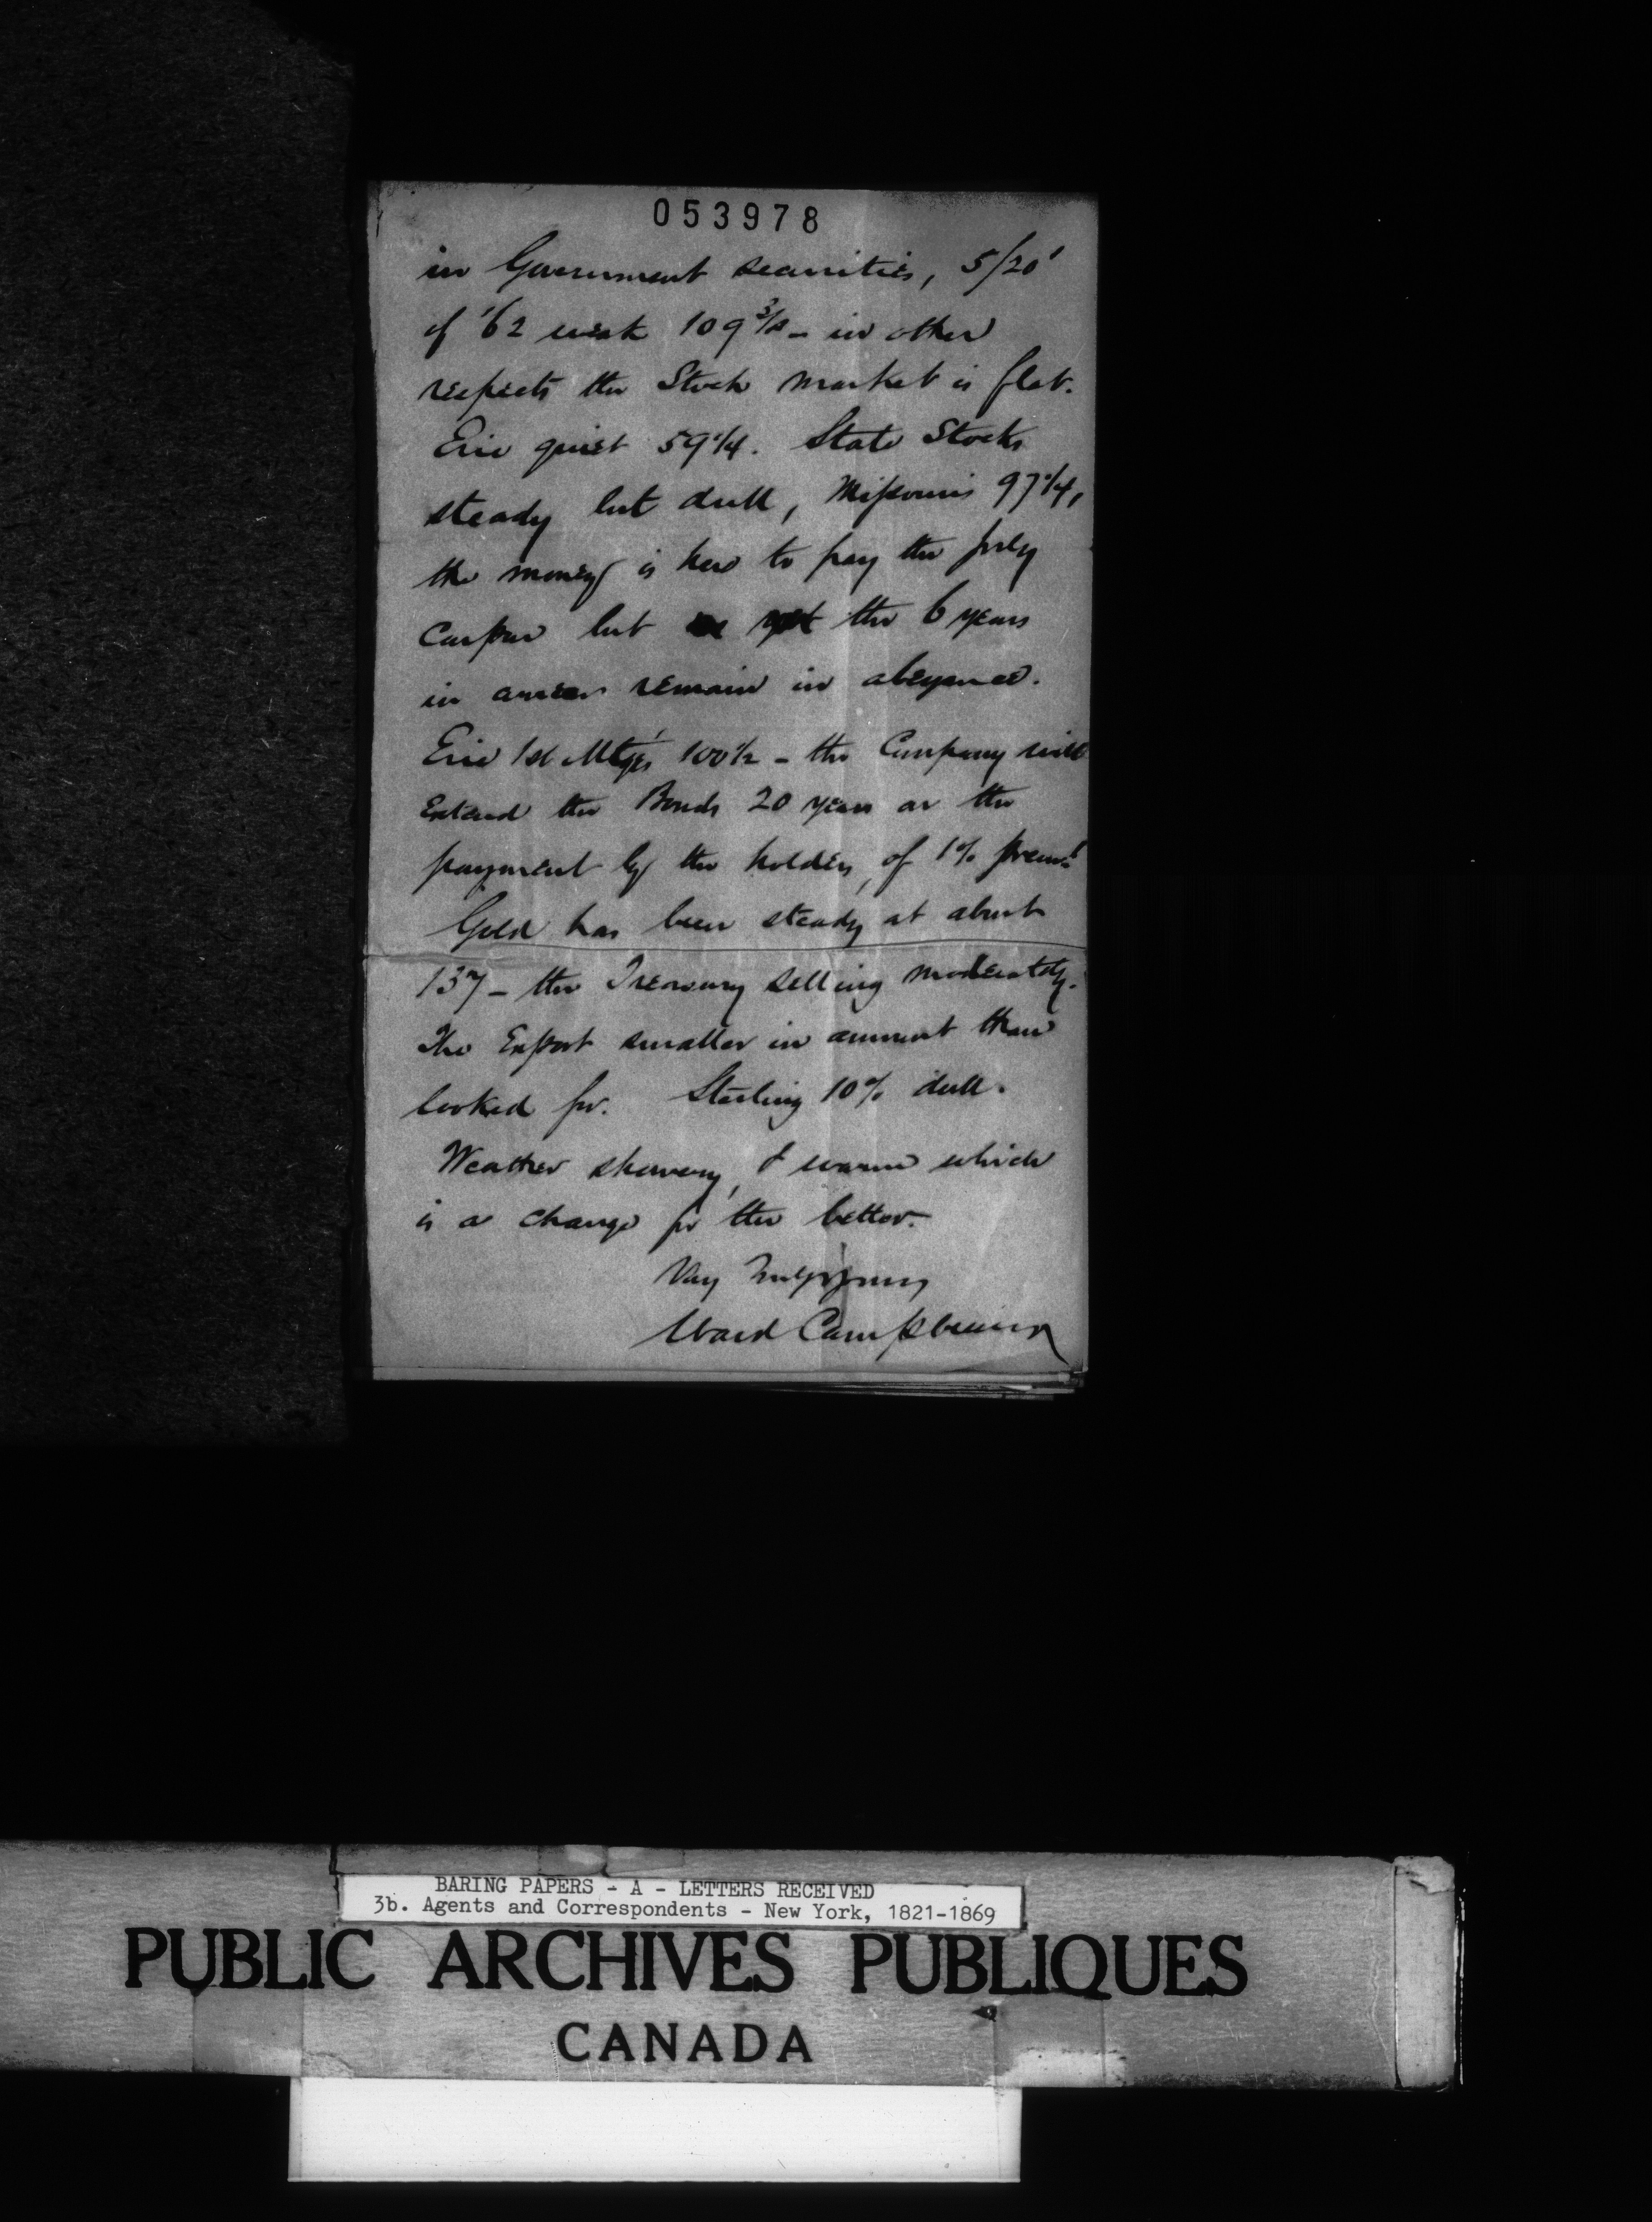 053978
in Government securities, 5/20'
of '62 weak 109 3/8 - in other
respects the Stock market is flat.
Erie quiet 59 1/4. State Stocks
steady but dull, Missouris 97 1/4,
the money is here to pay the July
Coupon but the 6 years
in arrear remain in abeyance.
Erie 1st Mtges 100 1/2 - the Company will
Extend the Bonds 20 years on the
payment by the holders, of 1% prem.
Gold has been steady at about
137 - the Treasury selling moderately.
The Export smaller in amount than
looked for. Sterling 10% dull.
Weather showery, & warm which
is a change for the better.
Very Truly Yours
Ward Campbell
BARING PAPERS - A - LETTERS RECEIVED
3b. Agents and Correspondents - New York, 1821-1869
PUBLIC ARCHIVES PUBLIQUES
CANADA